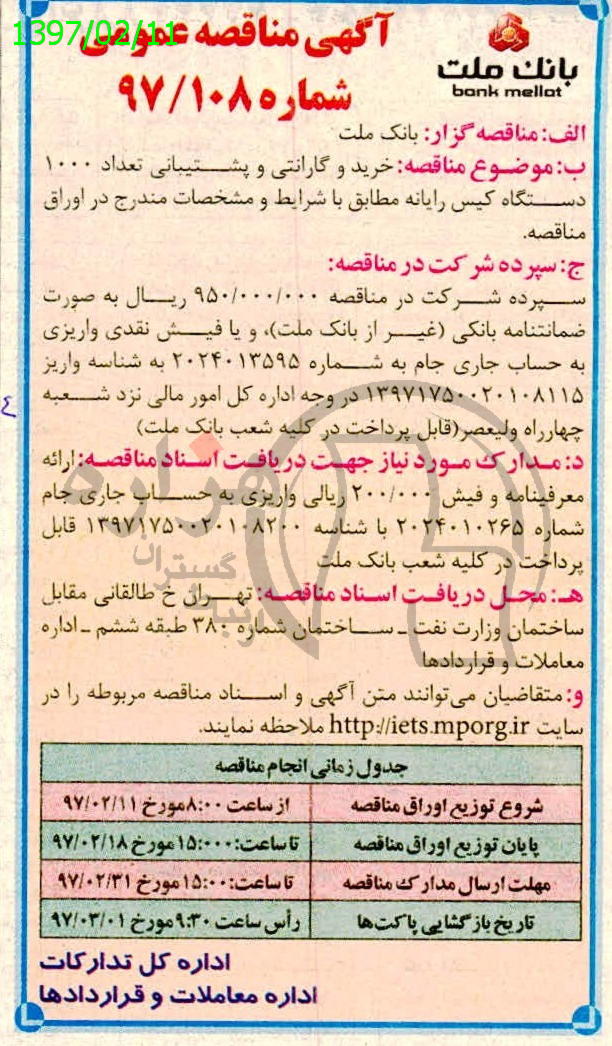 1397/02/11
آگهی مناقصه عمومی
شماره ۹۷/۱۰۸
بانک ملت
bank mellat
الف: مناقصه گزار: بانک ملت
ب: موضوع مناقصه: خرید و گارانتی و پشتیبانی تعداد ۱۰۰۰
دستگاه کیس رایانه مطابق با شرایط و مشخصات مندرج در اوراق
مناقصه.
ج: سپرده شرکت در مناقصه:
سپرده شرکت در مناقصه ۹۵۰/۰۰۰/۰۰۰ ریال به صورت
ضمانتنامه بانکی (غیر از بانک ملت)، و یا فیش نقدی واریزی
به حساب جاری جام به شماره ۲۰۲۴۰۱۳۵۹۵ به شناسه واریز
۱۳۹۷۱۷۵۰۰۲۰۱۰۸۱۱۵ در وجه اداره کل امور مالی نزد شعبه
چهارراه ولیعصر(قابل پرداخت در کلیه شعب بانک ملت)
د: مدارک مورد نیاز جهت دریافت اسناد مناقصه: ارائه
معرفینامه و فیش ۲۰۰/۰۰۰ ریالی واریزی به حساب جاری جام
شماره ۲۰۲۴۰۱۰۲۶۵ با شناسه ۱۳۹۷۱۷۵۰۰۲۰۱۰۸۲۰۰ قابل
پرداخت در کلیه شعب بانک ملت
هـ: محل دریافت اسناد مناقصه: تهران خ طالقانی مقابل
ساختمان وزارت نفت ـ ساختمان شماره ۳۸۰ طبقه ششم ـ اداره
معاملات و قراردادها
و: متقاضیان می‌توانند متن آگهی و اسناد مناقصه مربوطه را در
سایت http://iets.mporg.ir ملاحظه نمایند.
جدول زمانی انجام مناقصه
شروع توزیع اوراق مناقصه از ساعت ۸:۰۰ مورخ ۹۷/۰۲/۱۱
پایان توزیع اوراق مناقصه تا ساعت: ۱۵:۰۰۰ مورخ ۹۷/۰۲/۱۸
مهلت ارسال مدارک مناقصه تا ساعت: ۱۵:۰۰ مورخ ۹۷/۰۲/۳۱
تاریخ بازگشایی پاکت‌ها رأس ساعت ۹:۳۰ مورخ ۹۷/۰۳/۰۱
اداره کل تدارکات
اداره معاملات و قراردادها
هزاره
گستران